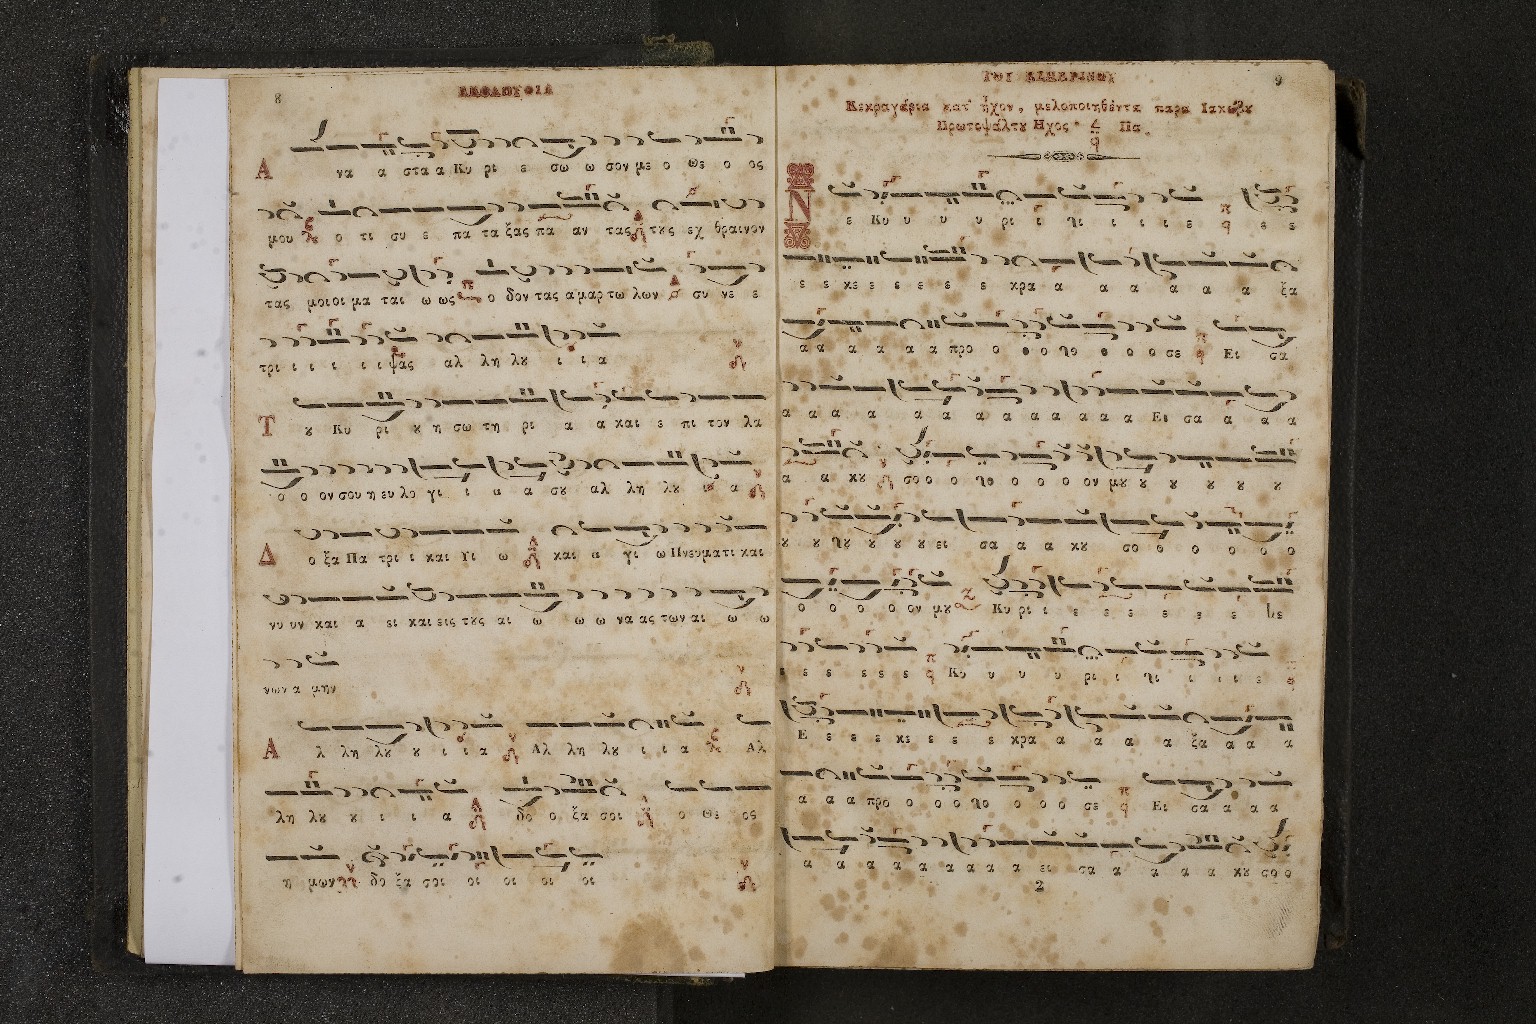 8
ΑΚΟΛΟΥΘΙΑ
Α να α στα α Κυ ρι ε σω ω σον με ο Θε ο ος
μου ο τι συ ε πα τα ξας πα αν τας τȣς εχ θραινον
τας μοιοι μα ται ω ως ο δον τας αμαρ τω λων συ νε ε
τρι ι ι ι ι ι ψας αλ λη λȣ ι ι α
Τ ȣ Κυ ρι ȣ η σω τη ρι α α και ε πι τον λα
ο ο ον σου η ευ λο γι ι ι α σȣ αλ λη λȣ ι α
Δ ο ξα Πα τρι ι και Υι ω και α γι ω Πνευματι και
νυ υν και α ει και εις τȣς αι ω ω ω να ας των αι ω ω
νων α μην
Α λ λη λȣ ȣ ι ι α Αλ λη λȣ ι ι α Αλ
λη λȣ ȣ ι ι α δο ο ξα σοι ο Θε ος
η μων δο ξα σοι οι οι οι οι
ΤΟΥ ΕΣΠΕΡΙΝΟΥ
9
Κεκραγάρια κατ' ἦχον, μελοποιηθέντα παρα Ιακώβȣ
Πρωτοψάλτȣ Ηχος Πα
Ν ε Κυ υ υ υ ρι ι χι ι ι ι ε ε ε
ε ε κε ε ε ε ε ε κρα α α α α α α ξα
α α α α α α προ ο ο ο χο ο ο ο σε Ει σα
α α α α α α α α α α α α α Ει σα α α α
α α κȣ σο ο ο χο ο ο ο ο ον μȣ ȣ ȣ ȣ ȣ ȣ
ȣ ȣ χȣ ȣ ȣ ȣ ει σα α α κȣ σο ο ο ο ο ο
ο ο ο ο ο ον μȣ Κυ ρι ι ε ε ε ε ε ε ε
ε ε ε ε ε ε Κυ υ υ υ ρι ι χι ι ι ι ε
Ε ε ε ε κε ε ε ε κρα α α α α α ξα α α α
α α α προ ο ο ο χο ο ο ο σε Ει σα α α α
α α α α α α α α α ει σα α α α α κȣ σο ο
2